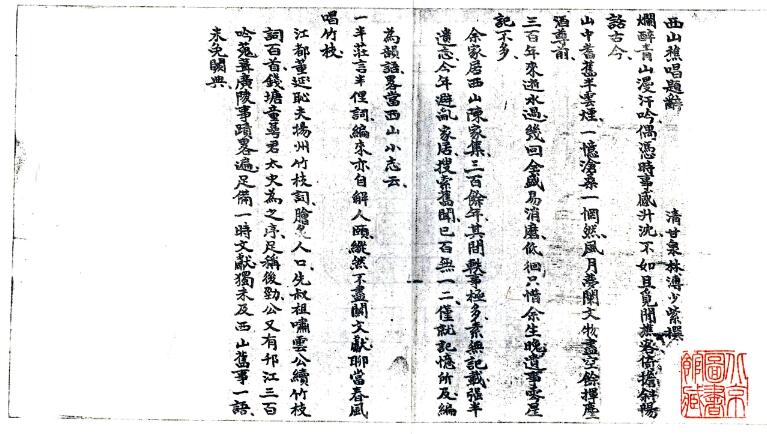 西山樵唱題辭
清甘泉林溥少紫撰
爛醉青山漫汗吟偶憑時事感升沈不如且覓聞樵客倚擔斜陽
話古今
山中耆舊半雲煙一憶滄桑一惘然風月夢闌文物盡空餘揮麈
酒尊前
三百年來逝水過幾回全盛易消磨低徊只惜余生晚遺事零星
記不多
余家居西山陳家集三百餘年其間軼事極多素無記載強半
遺忘今年避亂家居搜索舊聞已百無一二僅就記憶所及編
為韻語畧當西山小志云
一半莊言半俚詞編來亦自解人頤縱然不盡關文獻聊當春風
唱竹枝
江都董延恥夫揚州竹枝詞膾炙人口先叔祖嘯雲公續竹枝
詞百首錢塘童萼君太史為之序足稱後勁公又有邗江三百
吟蒐葺廣陵事蹟畧遍足備一時文獻獨未及西山舊事一語
未免闕典
北京圖書館藏